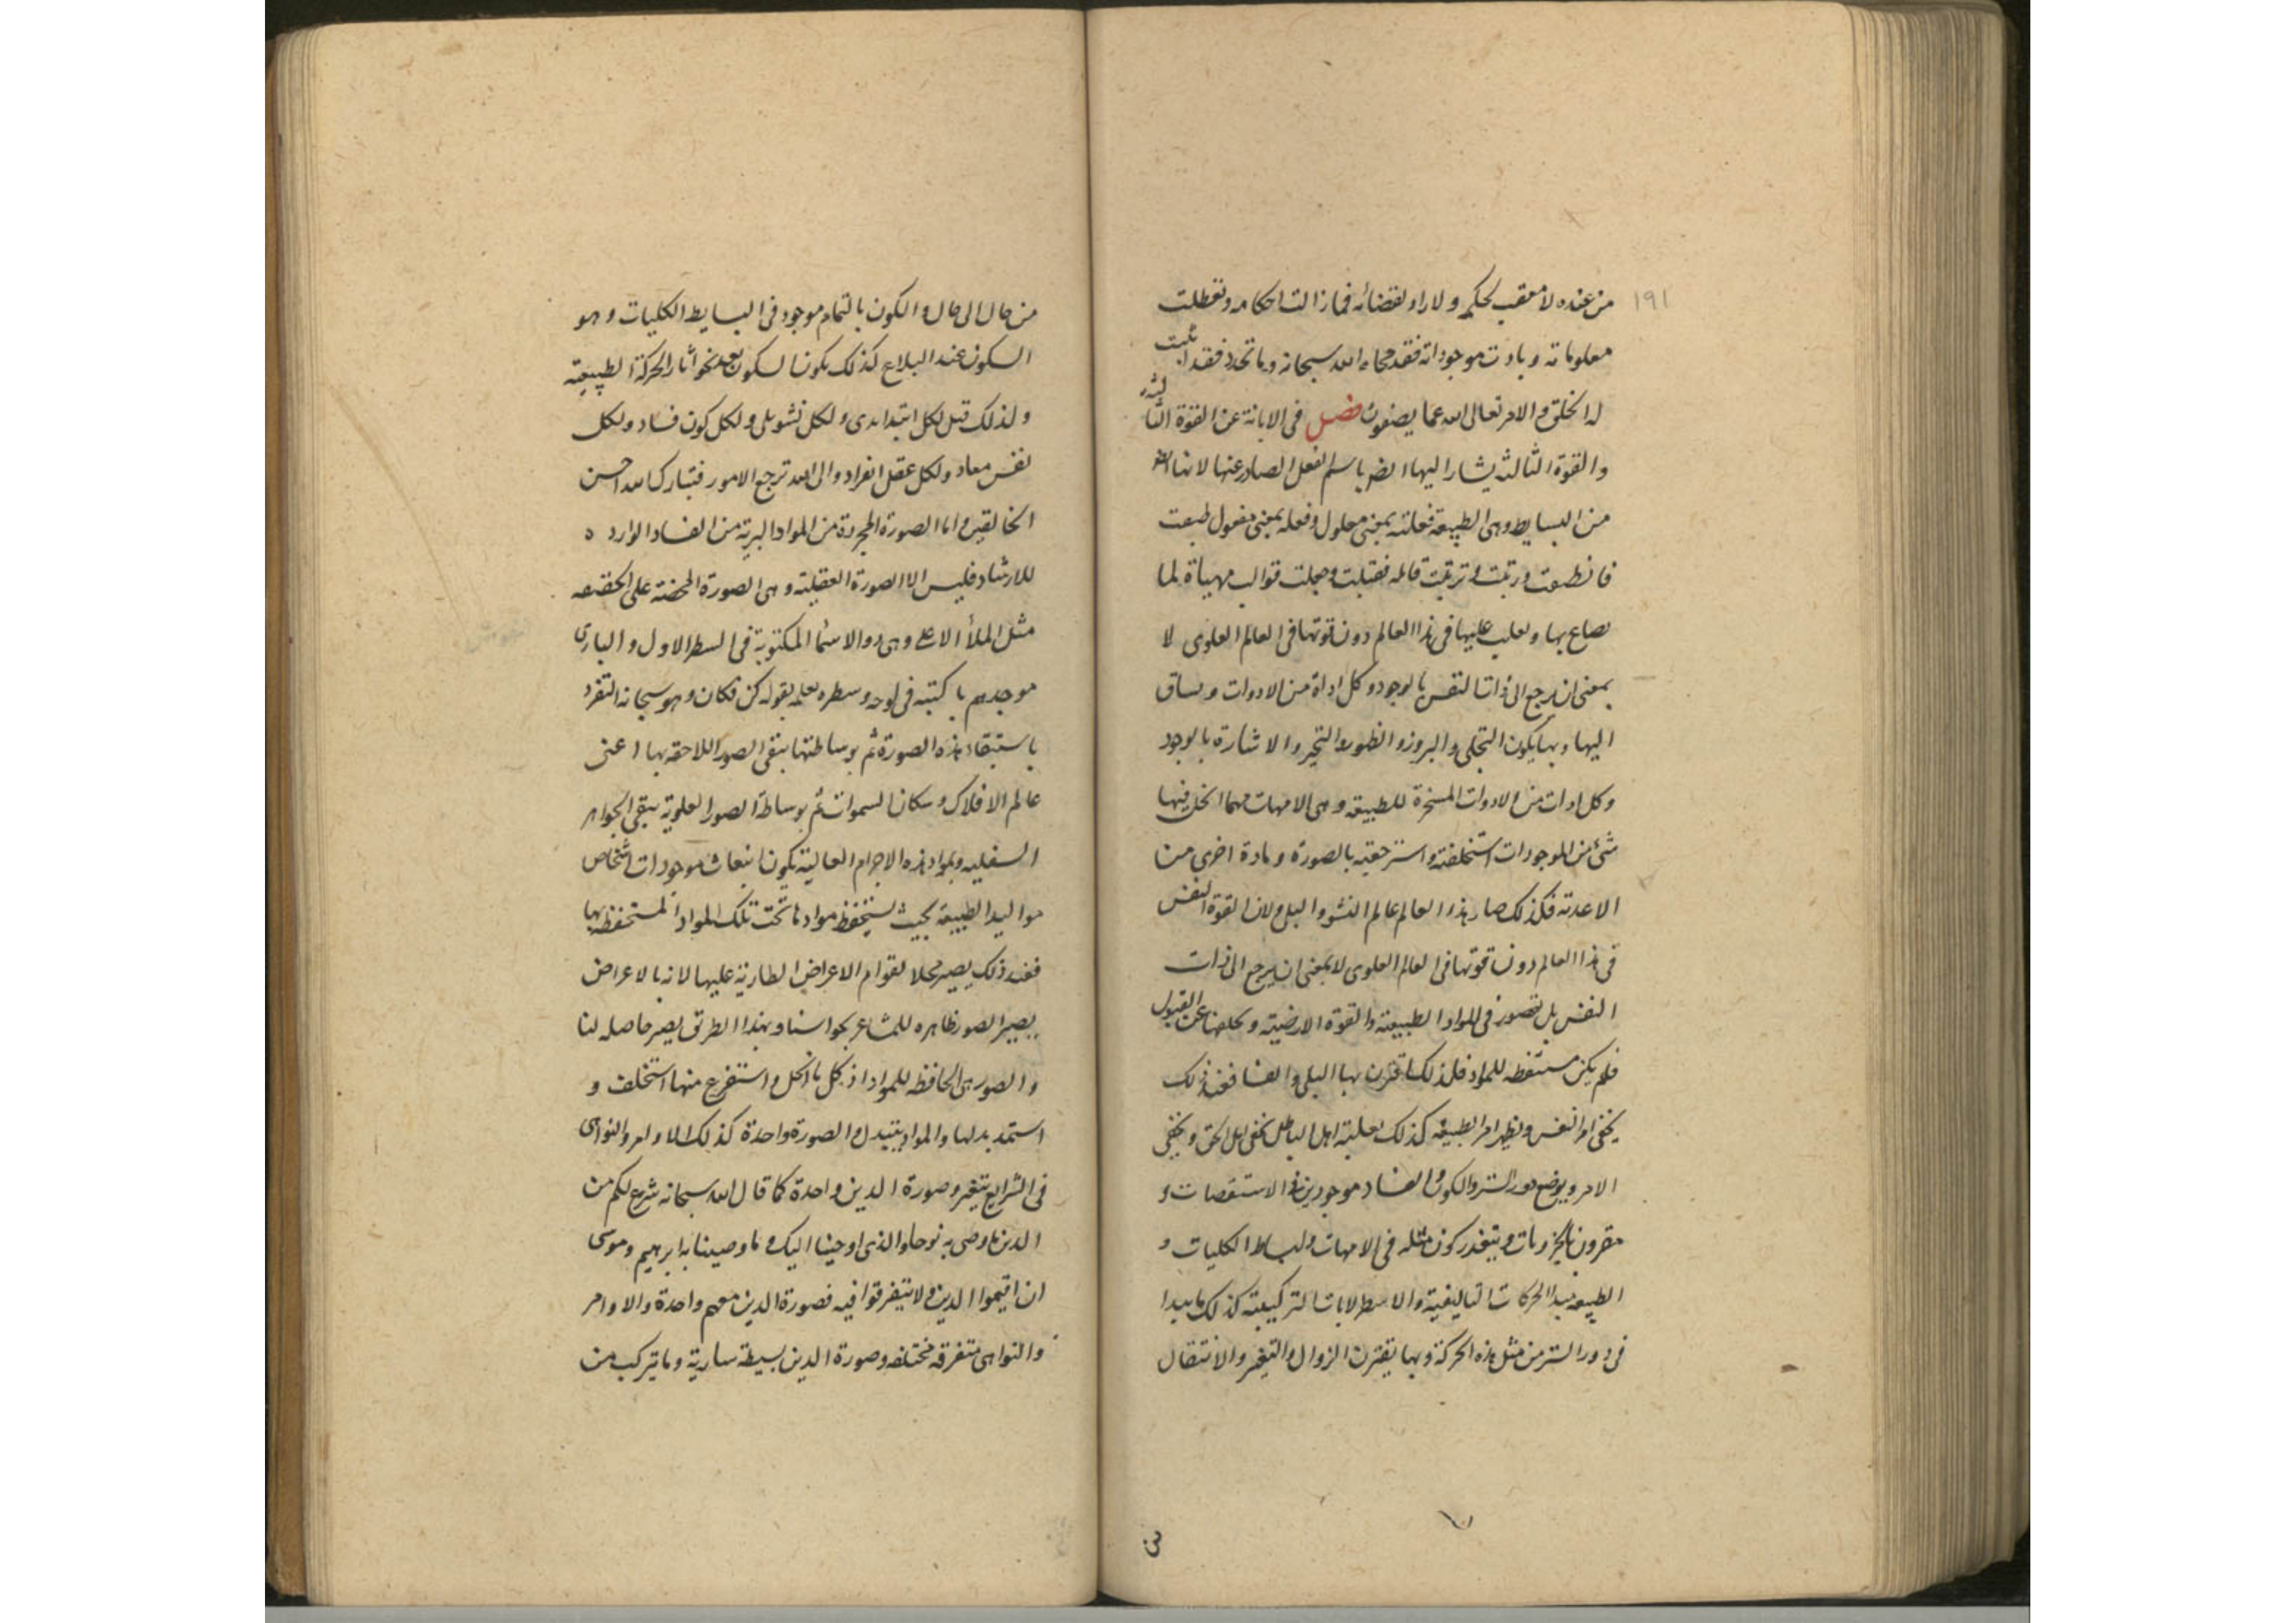 ١٩١
من عنده لا معقب لحكمه ولا راد لقضائه فما زالت احكامه وتعطلت
معلوماته وبادت موجوداته فقد محاه الله سبحانه وما تجدد فقد اثبت
له الخلق والامر تعالى الله عما يصفون فصل فى الابانة عن القوة الثالثة
والقوة الثالثة يشار اليها ايضا باسم الفعل الصادر عنها لانها
من البسايط وهى الطبيعة فعلته بمعنى معلول وفعله بمعنى مفعول طبعت
فانطبعت ورتبت وترتبت قابله فقبلت وجعلت قوالب مهياة لما
بها عليها فى هذا العالم دون قوتها فى العالم العلوى لا
بمعنى ان يرجع الى ذات النفس بالوجود وكل اداة من الادوات
اليها وبها يكون التجلى والبروز والظهور والتحيز والاشارة بالوجود
وكل ادات من الادوات المسخرة للطبيعة وهى الامهات مهما انحل فيها
شئ من الموجودات استخلفته واسترجعته بالصورة ومادة اخرى من
الاغدته فكذلك صار هذا العالم عالم النشو والبلى ولان القوة النفس
فى هذا العالم دون قوتها فى العالم العلوى لا بمعنى ان يرجع الى ذات
النفس بل تصور فى المواد الطبيعية والقوة الارضية عن القبول
فلم يكن مستحفظه للمواد فلذلك اقترن بها البلى والفنا فعند ذلك
يخفى امر النفس ويظهر امر الطبيعة كذلك اهل الباطل يخفى اهل الحق ويخفى
الامر ويوضح دور الستر والكون والفساد موجودين فى الاستقصات و
مقرون بالجزويات ويتعذر كون مثله فى الامهات والبسايط الكليات و
الطبيعة مبدا الحركات التاليفية والاسطر لابات التركيبية كذلك ما يبدا
فى دور الستر من مثل هذه الحركة وبها يقترن الزوال والتغير والانتقال
من
من حال الى حال والكون بالتمام موجود فى البسايط الكليات وهو
السكون عند البلاغ كذلك يكون السكون بعد نحو اثار الحركة الطبيعية
ولذلك قيل لكل ابتدا مدى ولكل نشو بلى ولكل كون فساد ولكل
نفس معاد ولكل عقل انفراد والى الله ترجع الامور فتبارك الله احسن
الخالقين واما الصورة المجردة من المواد البرية من الفساد الوارده
للارشاد فليس الا الصورة العقلية وهى الصورة المحضة على الحقيقه
مثل الملأ الاعلى وهى ذو الاسما المكتوبة فى السطر الاول والبارى
موجدهم ما كتبه فى لوحه وسطره بقوله كن فكان وهو سبحانه التفرد
باستبقاء هذه الصورة ثم بوساطتها يبقى الصور اللاحقه بها اعنى
عالم الافلاك وسكان السموات ثم بوساطة الصور العلوية يبقى الجواهر
السفليه وبمواد هذه الاجرام العالية يكون انبعاث موجودات اشخاص
مواليد الطبيعة بحيث يستحفظ مواد ما تحت تلك المواد المستحفظه بها
فعند ذلك يصير محلا لقوام الاعراض الطارية عليها لانه بالاعراض
يصير الصور ظاهره للمشاعر بحواسنا وبهذا الطريق يصير حاصله لنا
والصور هى الحافظه للمواد اذ كل ما انحل واستفرغ منها استخلف و
استمد بدلها والمواد يتبدل والصورة واحدة كذلك الاوامر والنواهى
فى الشرايع يتغير وصورة الدين واحدة كما قال الله سبحانه شرع لكم من
الدين ما وصى به نوحا والذى اوحينا اليك وما وصينا به ابرهيم وموسى
ان اقيموا الدين ولا تتفرقوا فيه فصورة الدين معهم واحدة والاوامر
والنواهى متفرقه مختلفه وصورة الدين بسيطة سارية وما يتركب من